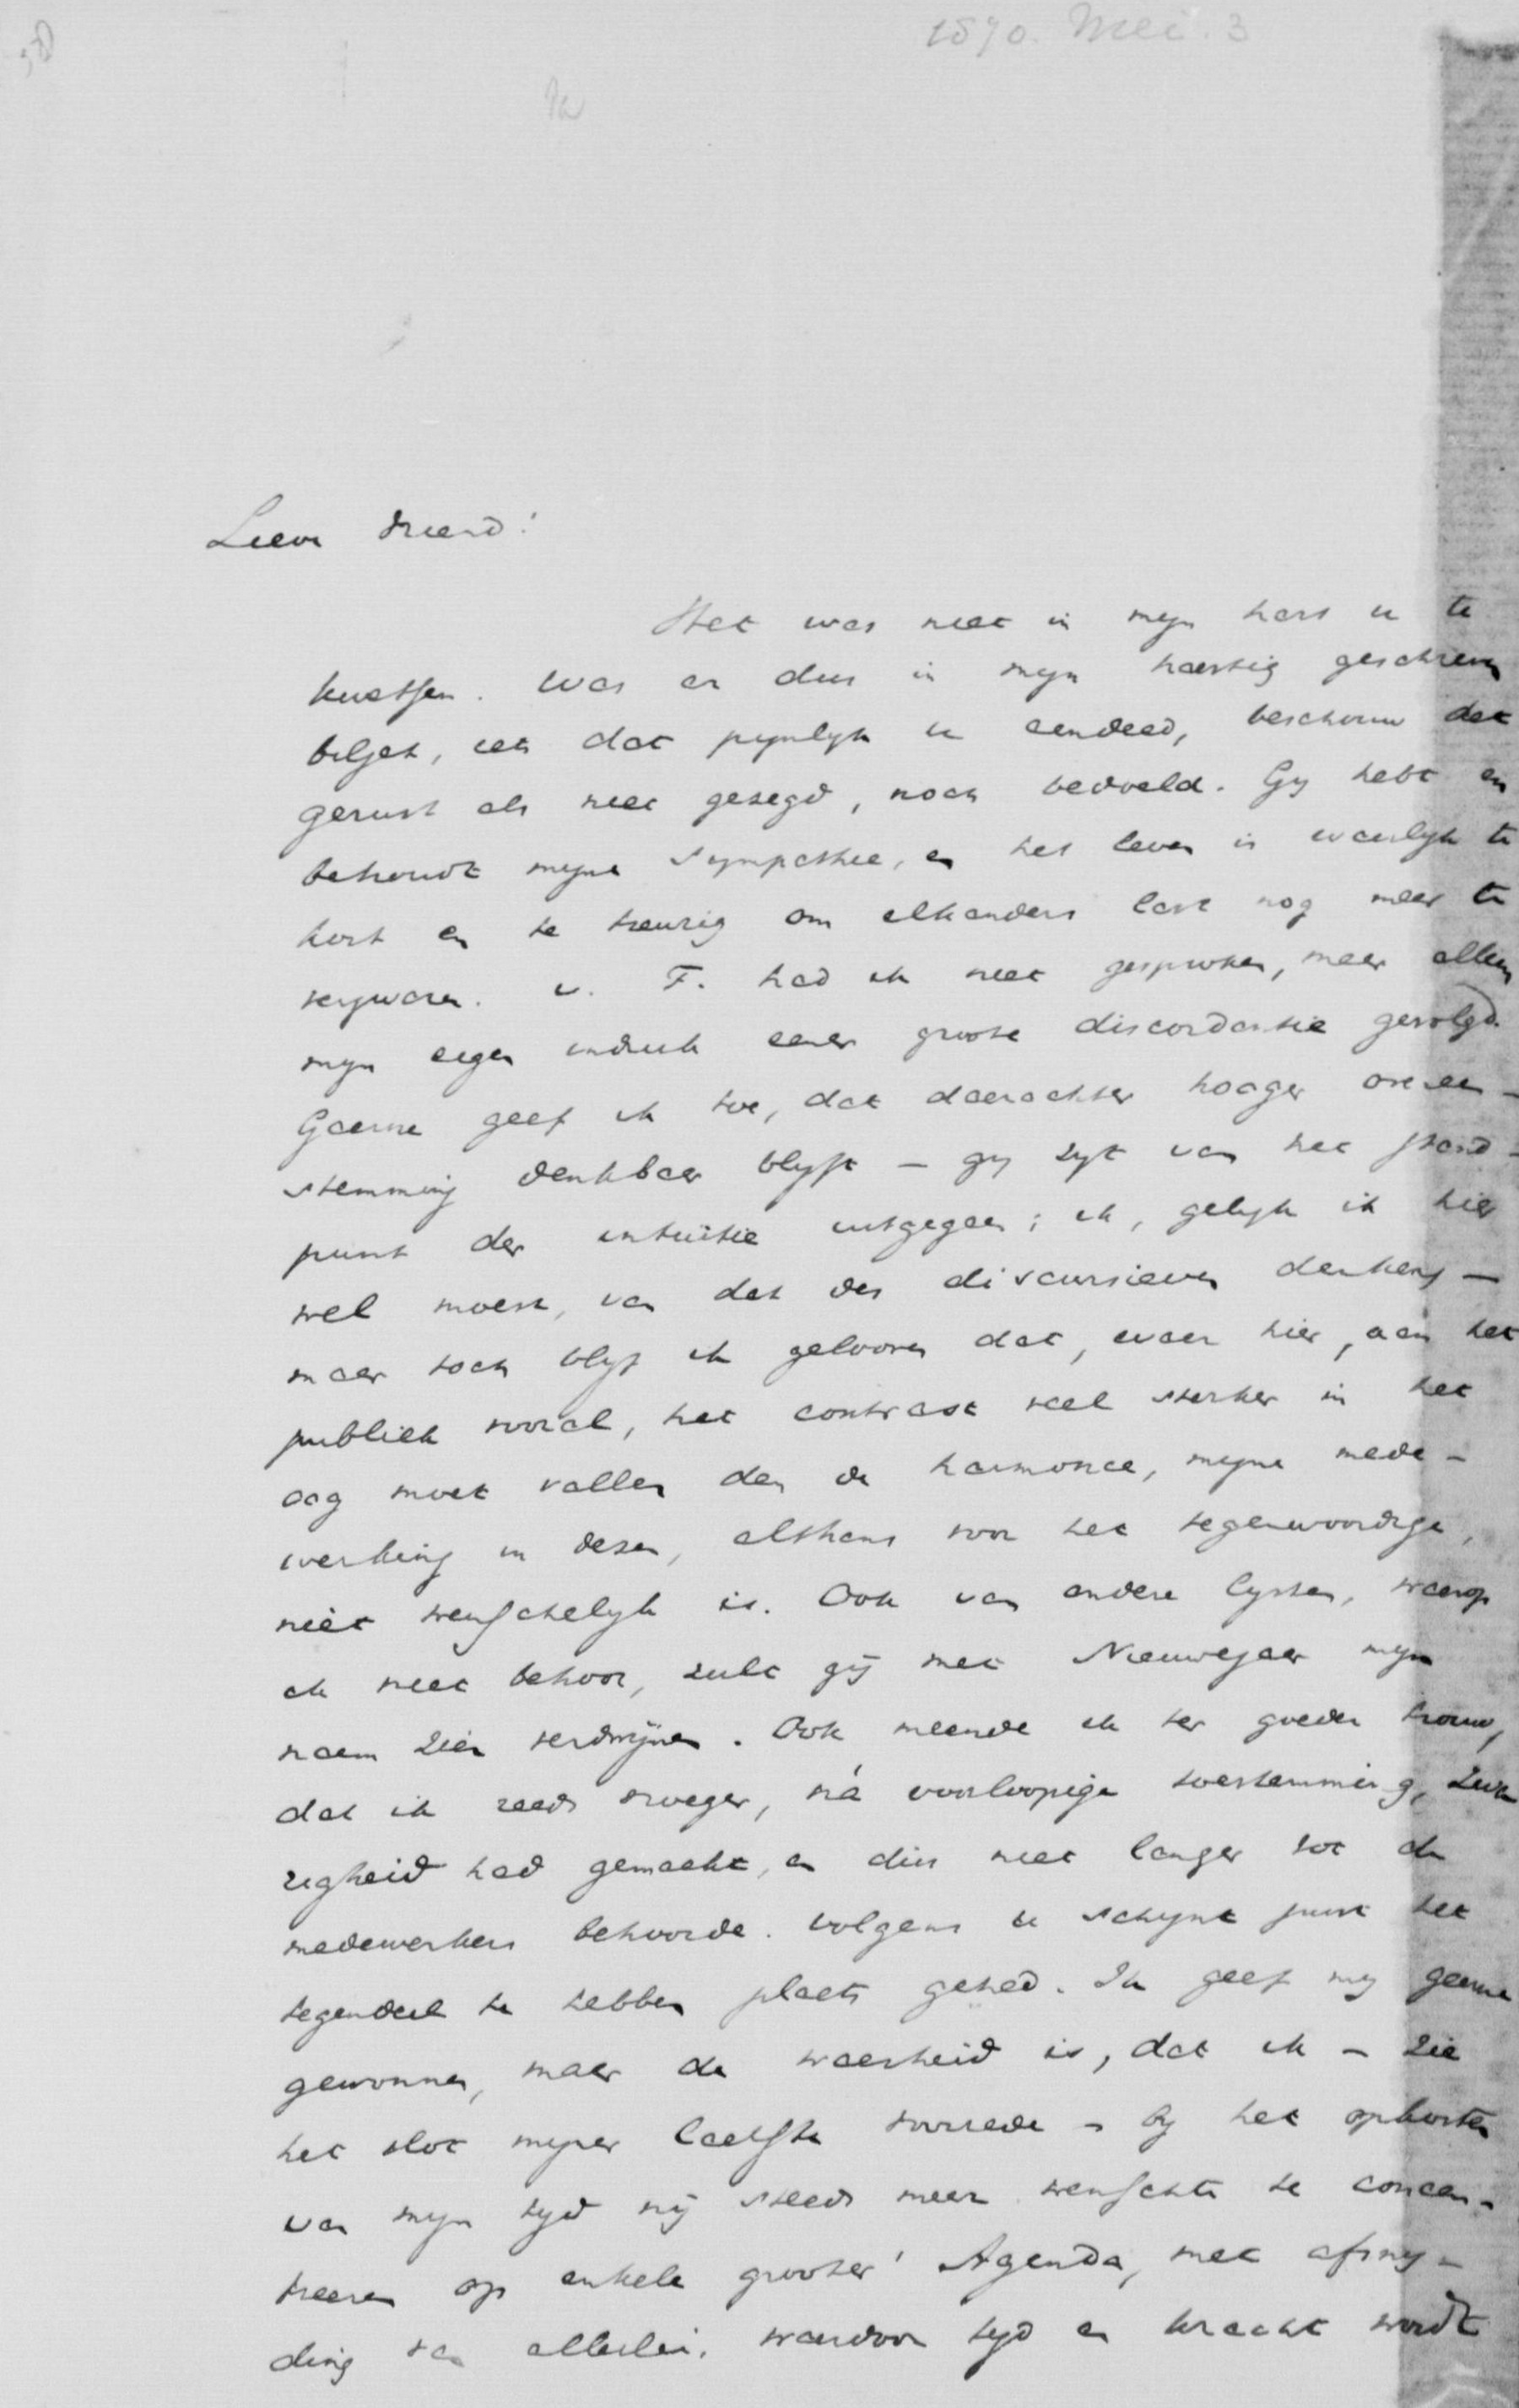 1870. Mei. 3
Lieve vriend!
Het was niet in mijn hart u te
kwetsen. Was er dus in mijn haastig geschreven
biljet, iets dat pijnlijk u aandeed, beschouw dat
gerust als niet gezegd, noch bedoeld. Gij hebt en
behoudt mijne sympathie, en het leven is waarlijk te
kort en te treurig om elkanders last nog meer te
verzwaren. v. F. had ik niet gesproken, maar alleen
mijn eigen indruk eener groote discordantie gevolgd.
Gaarne geef ik toe, dat daarachter hooger overeen-
stemming denkbaar blijft – gij zijt van het stand-
punt der intuïtie uitgegaan; ik, gelijk ik hier
wel moest, van dat des discursieven denkens –
maar toch blijf ik gelooven dat, waar hier, aan het
publiek vooral, het contrast veel sterker in het
oog moet vallen dan de harmonie, mijne mede-
werking in dezen, althans voor het tegenwoordige,
niet wenschelijk is. Ook van andere lijsten, waarop
ik niet behoor, zult gij met Nieuwejaar mijn
naam zien verdwijnen. Ook meende ik ter goeder trouw,
dat ik reeds vroeger, ná voorloopige toestemming,
zigheid had gemaakt, en dus niet langer tot de
medewerkers behoorde. Volgens u schijnt juist het
tegendeel te hebben plaats gehad. Ik geef mij gaarne
gewonnen, maar de waarheid is, dat ik – zie
het slot mijner laatste voorrede – bij het opkorten
van mijn tijd mij steeds meer wenschte te concen-
treeren op enkele groote Agenda, met afsnij-
ding van allerlei, waardoor tijd en kracht wordt